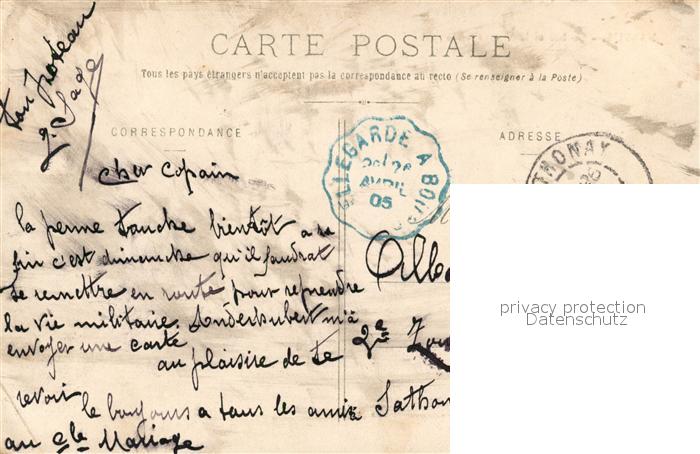 CARTE POSTALE
Tous les pays étrangers n'acceptent pas la correspondance au recto (Se renseigner à la Poste)
CORRESPONDANCE
ADRESSE
ELLEGARDE A BOU
AVRIL
05
THONAY
cher copain
la perme touche bientôt a sa
fin c'est dimanche qu'il faudrat
se remettre en route pour reprendre
la vie militaire. m'a
envoyer une carte
au plaisire de te
revoir
le boujours a tous les amis
au cle Mariage
2e Zou
Sathon
privacy protection
Datenschutz